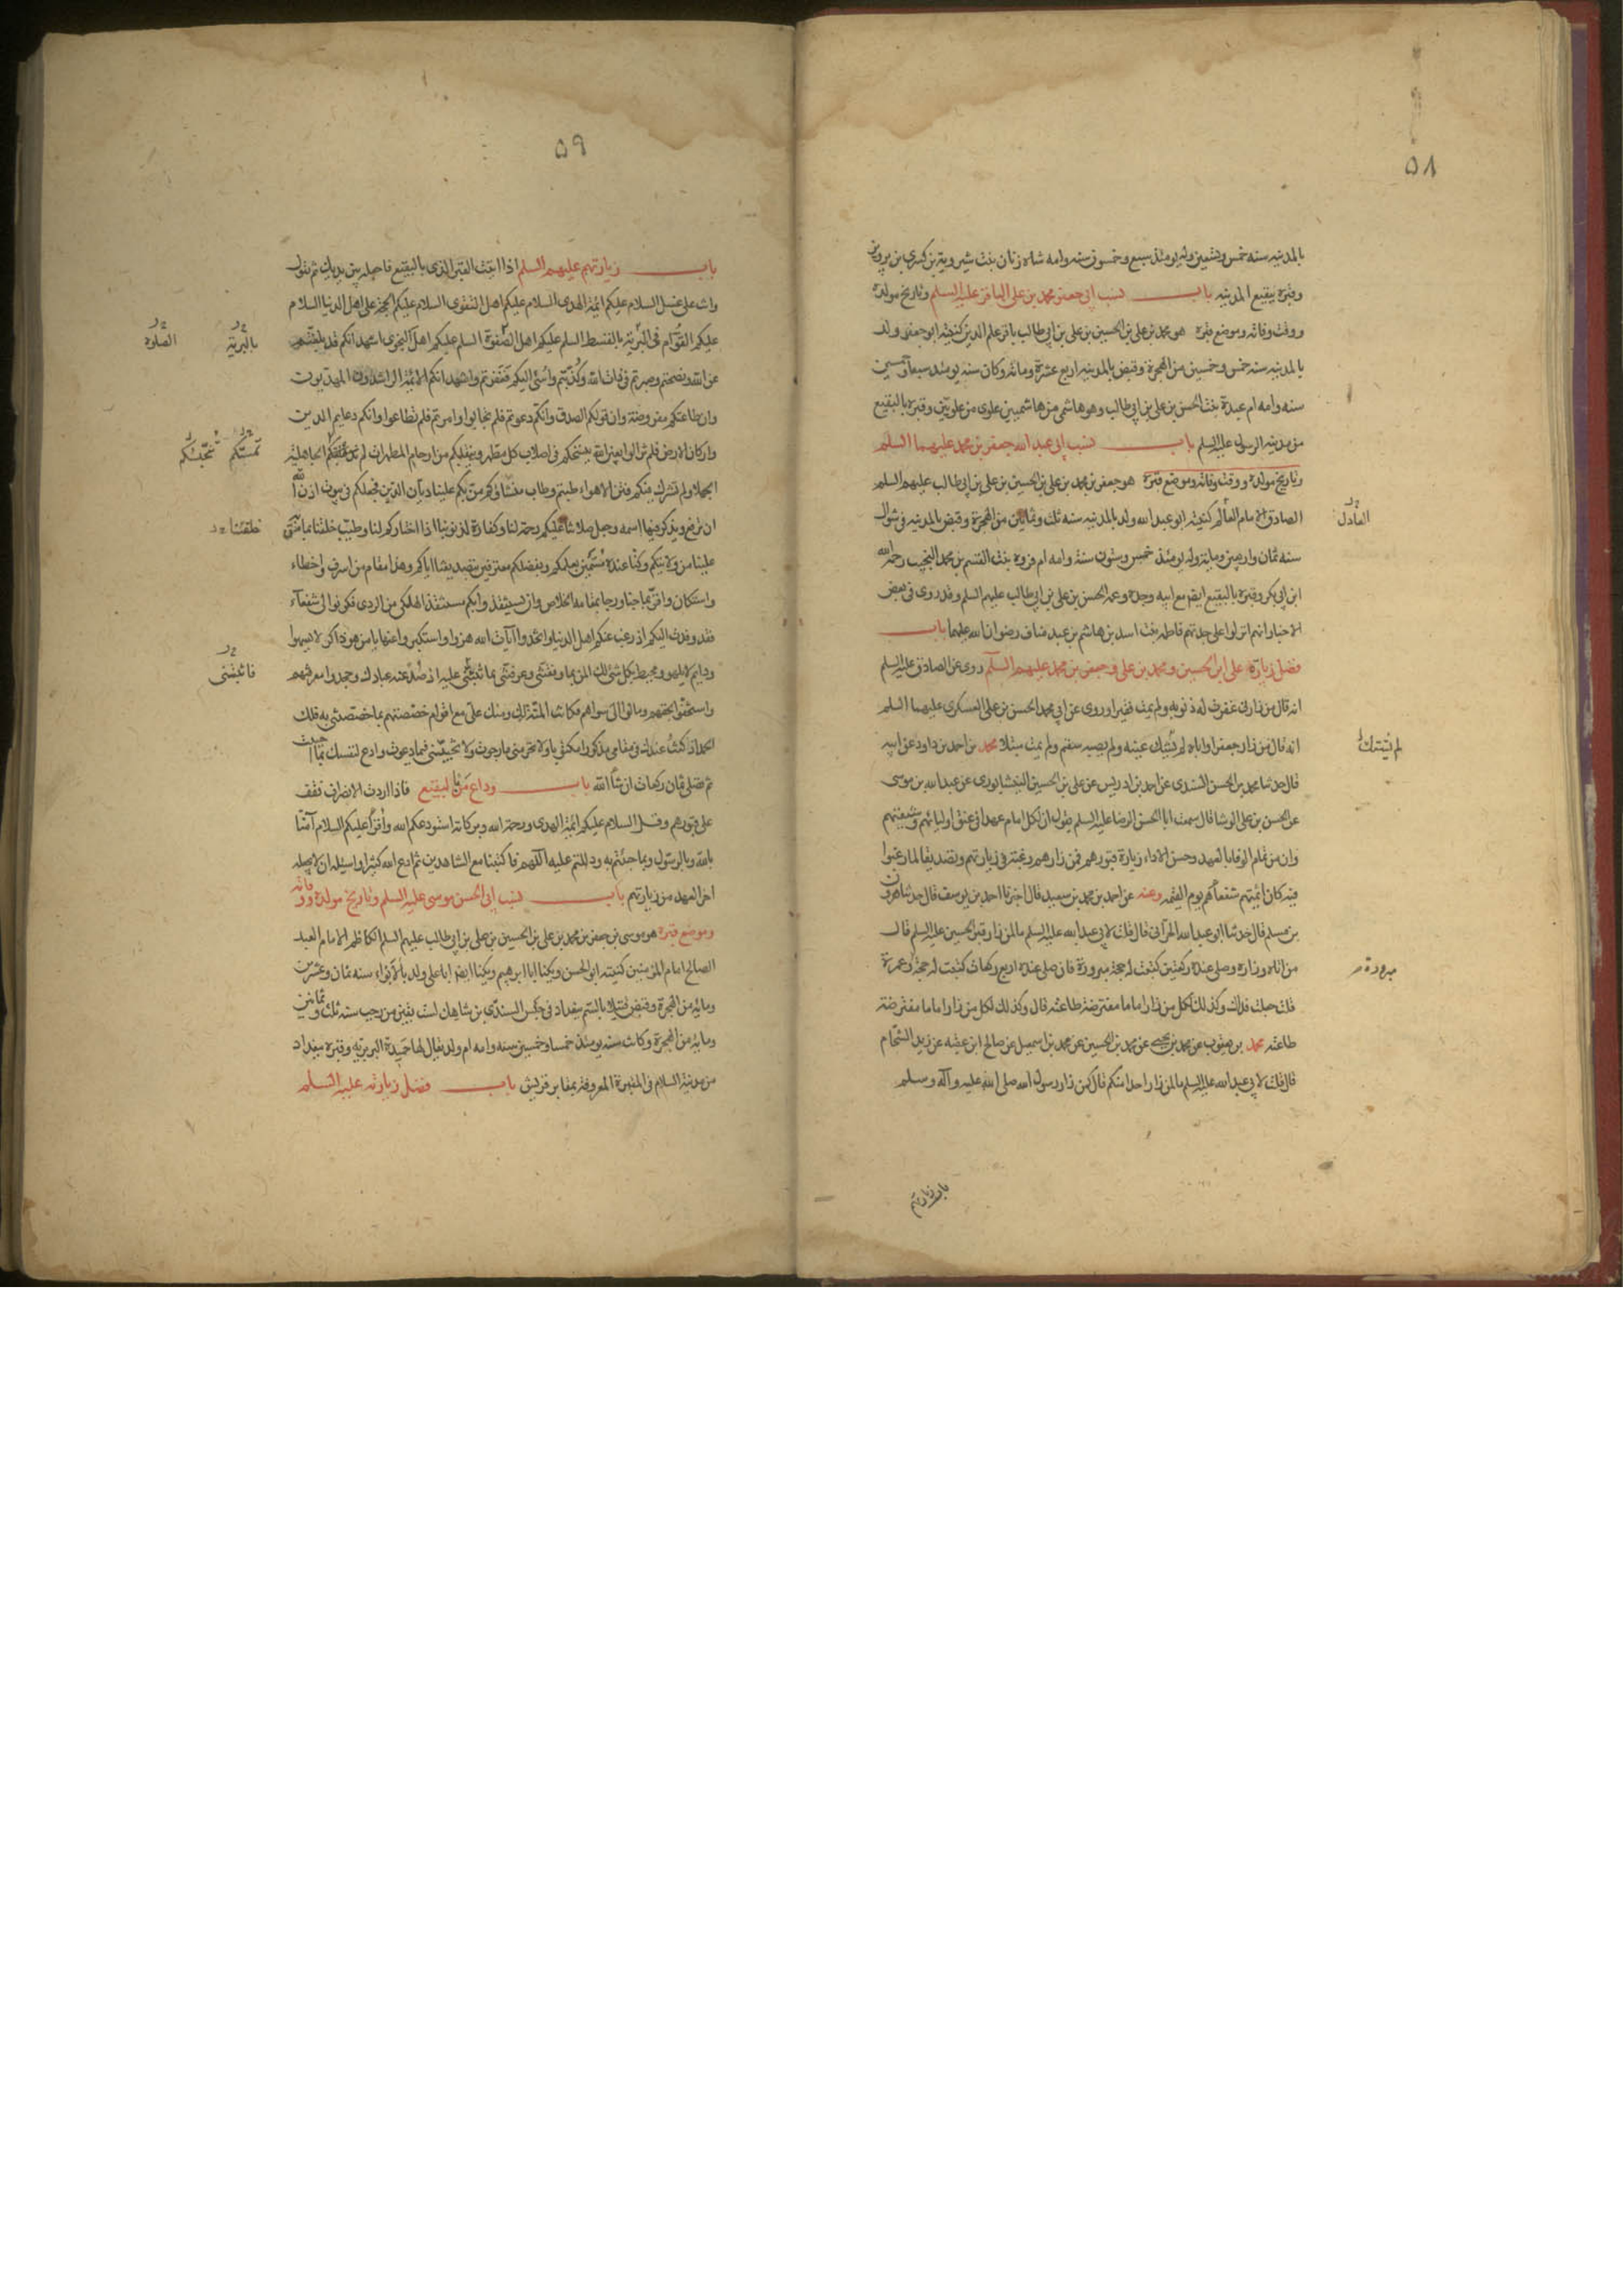 ٥٨
بالمدينه سنه خمس وتسعين وله يومئذ سبع وخمسون سنه وامه شاه زنان بنت شيرويه بن كسرى بن پرويز
وقبره ببقيع المدينه باب نسب ابى جعفر محمد بن على الباقر عليه السلم وتاريخ مولده
ووقت وفاته وموضع قبره هو محمد بن على بن الحسين بن على بن ابى طالب باقر علم الدين كنيته ابو جعفر ولد
بالمدينه سنه خمس وخمسين من الهجرة وقبض بالمدينه اربع عشرة ومائه وكان سنه يومئذ سبعا وخمسين
سنه وامه ام عبدة بنت الحسن بن على بن ابى طالب وهو هاشمى من هاشميين علوى من علويين وقبره بالبقيع
من مدينه الرسول عليه السلم باب نسب ابى عبد الله جعفر بن محمد عليهما السلم
وتاريخ مولده ووقت وفاته وموضع قبره هو جعفر بن محمد بن على بن الحسين بن على بن ابى طالب عليهم السلم
الصادق الامام العالم كنيته ابو عبد الله ولد بالمدينه سنه ثلث وثمانين من الهجرة وقبض بالمدينه فى شوال
العادل
سنه ثمان واربعين ومايه وله يومئذ خمس وستون سنة وامه ام فروه بنت القسم بن محمد النجيب رحمه الله
ابن ابى بكر وقبره بالبقيع ايضا مع ابيه وجده وعمه الحسن بن على بن ابى طالب عليهم السلم وقد روى فى بعض
الاخبار انهم انزلوا على جدتهم فاطمه بنت اسد بن هاشم بن عبد مناف رضوان الله عليها باب
فضل زيارة على ابن الحسين ومحمد بن على وجعفر بن محمد عليهم السلم روى عن الصادق عليه السلم
انه قال من زارنى غفرت له ذنوبه ولم يمت فقيرا وروى عن ابى محمد الحسن بن على العسكرى عليهما السلم
انه قال من زار جعفرا واباه لم يشتك عينيه ولم يصبه سقم ولم يمت مبتلا محمد بن احمد بن داود عن ابيه
قال حدثنا محمد بن الحسن السندى عن احمد بن ادريس عن على بن الحسين النيشابورى عن عبد الله بن موسى
عن الحسن بن على الوشا قال سمعت ابا الحسن الرضا عليه السلم يقول ان لكل امام عهدا فى عنق اوليائهم وشيعتهم
وان من تمام الوفا بالعهد وحسن الاداء زيارة قبورهم فمن زارهم رغبة فى زيارتهم وتصديقا لما رغبوا
فيه كان ائمتهم شفعاهم يوم القيمه وعنه عن احمد بن محمد بن سعيد قال اخبرنا احمد بن يوسف قال حدثنا هرون
بن مسلم قال حدثنا ابو عبد الله الحرانى قال قلت لابى عبد الله عليه السلم ما لمن زار قبر الحسين عليه السلم قال
من اتاه وزاره وصلى عنده ركعتين كتبت له حجة مبرورة فان صلى عنده اربع ركعات كتبت له حجة وعمرة
مبرورة
قلت جعلت فداك وكذلك لكل من زار اماما مفترضة طاعته قال وكذلك لكل من زار اماما مفترضة
طاعته محمد بن يعقوب عن محمد بن يحيى عن محمد بن الحسين عن محمد بن اسمعيل عن صالح ابن عقبه عن زيد الشحام
قال قلت لابى عبد الله عليه السلم ما لمن زار احدا منكم قال كمن زار رسول الله صلى الله عليه وآله وسلم
باب زيارتهم
٥٩
باب زيارتهم عليهم السلم اذا اتيت القبر الذى بالبقيع فاجعله بين يديك ثم تقول
وانت على غسل السلام عليكم ائمة الهدى السلام عليكم اهل التقوى السلام عليكم الحجة على اهل الدنيا السلام
عليكم القوام فى البرية بالقسط السلم عليكم اهل الصفوة السلم عليكم اهل النجوى اشهد انكم قد بلغتم
بالبرية
الصلوة
عن الله ونصحتم وصبرتم فى ذات الله وكذبتم واسئ اليكم فغفرتم واشهد انكم الائمة الراشدون المهديون
وان طاعتكم مفروضة وان قولكم الصدق وانكم دعوتم فلم تجابوا وامرتم فلم تطاعوا وانكم دعايم الدين
واركان الارض فلم تزالوا بعين الله ينسخكم فى اصلاب كل مطهر وينقلكم من ارحام المطهرات لم تدنسكم الجاهلية
الجهلا ولم تشرك فيكم فتن الاهواء طبتم وطاب منشاؤكم من بكم علينا ديان الدين فجعلكم فى بيوت اذن الله
ان ترفع ويذكر فيها اسمه وجعل صلاتنا عليكم رحمة لنا وكفارة لذنوبنا اذا اختاركم لنا وطيب خلقنا بما من
خلقتنا
علينا من ولايتكم وكنا عنده مسمين بعلمكم وبفضلكم معترفين بتصديقنا اياكم وهذا مقام من اسرف واخطاء
واستكان واقر بما جنا ورجا بمقامه الخلاص وان يستنقذه بكم مستنقذ الهلكى من الردى فكونوا لى شفعاء
فقد وفدت اليكم اذ رغب عنكم اهل الدنيا واتخذوا آيات الله هزوا واستكبروا عنها يا من هو ذاكر لا يسهوا
ودايم لا يلهو ومحيط بكل شئ لك المن بما وفقتنى وعرفتنى بما ثبتنى عليه اذ صد عنه عبادك وجحدوا معرفتهم
واستخفوا بحقهم ومالوا الى سواهم فكانت المنة لك ومنك على مع اقوام خصصتهم بما خصصتنى به فلك
الحمد اذ كنت عندك فى مقامى مذكورا مكتوبا ولا تحرمنى ما رجوت ولا تخيبنى فيما دعوت وادع لنفسك بما احببت
ثم تصلى ثمان ركعات ان شاء الله باب وداع من بالبقيع فاذا اردت الانصراف فقف
على قبورهم وقل السلام عليكم ائمة الهدى ورحمة الله وبركاته استودعكم الله واقرأ عليكم السلام آمنا
بالله وبالرسول وبما جئتم به ودللتم عليه اللهم فاكتبنا مع الشاهدين ثم ادع الله كثيرا واسئله ان لا يجعله
اخر العهد من زيارتهم باب نسب ابى الحسن موسى عليه السلم وتاريخ مولده ووفاته
وموضع قبره هو موسى بن جعفر بن محمد بن على بن الحسين بن على بن ابى طالب عليهم السلم الكاظم الامام العبد
الصالح امام المؤمنين كنيته ابو الحسن ويكنا ابا ابرهيم ويكنا ايضا ابا على ولد بالابواء سنه ثمان وعشرين
ومايه من الهجرة وقبض قتيلا بالسم ببغداد فى حبس السندى بن شاهك لست بقين من رجب سنه ثلث وثمانين
ومايه من الهجرة وكانت سنه يومئذ خمسا وخمسين سنه وامه ام ولد يقال لها حميدة البربرية وقبره ببغداد
من مدينة السلام فى المقبرة المعروفة بمقابر قريش باب فضل زيارته عليه السلم